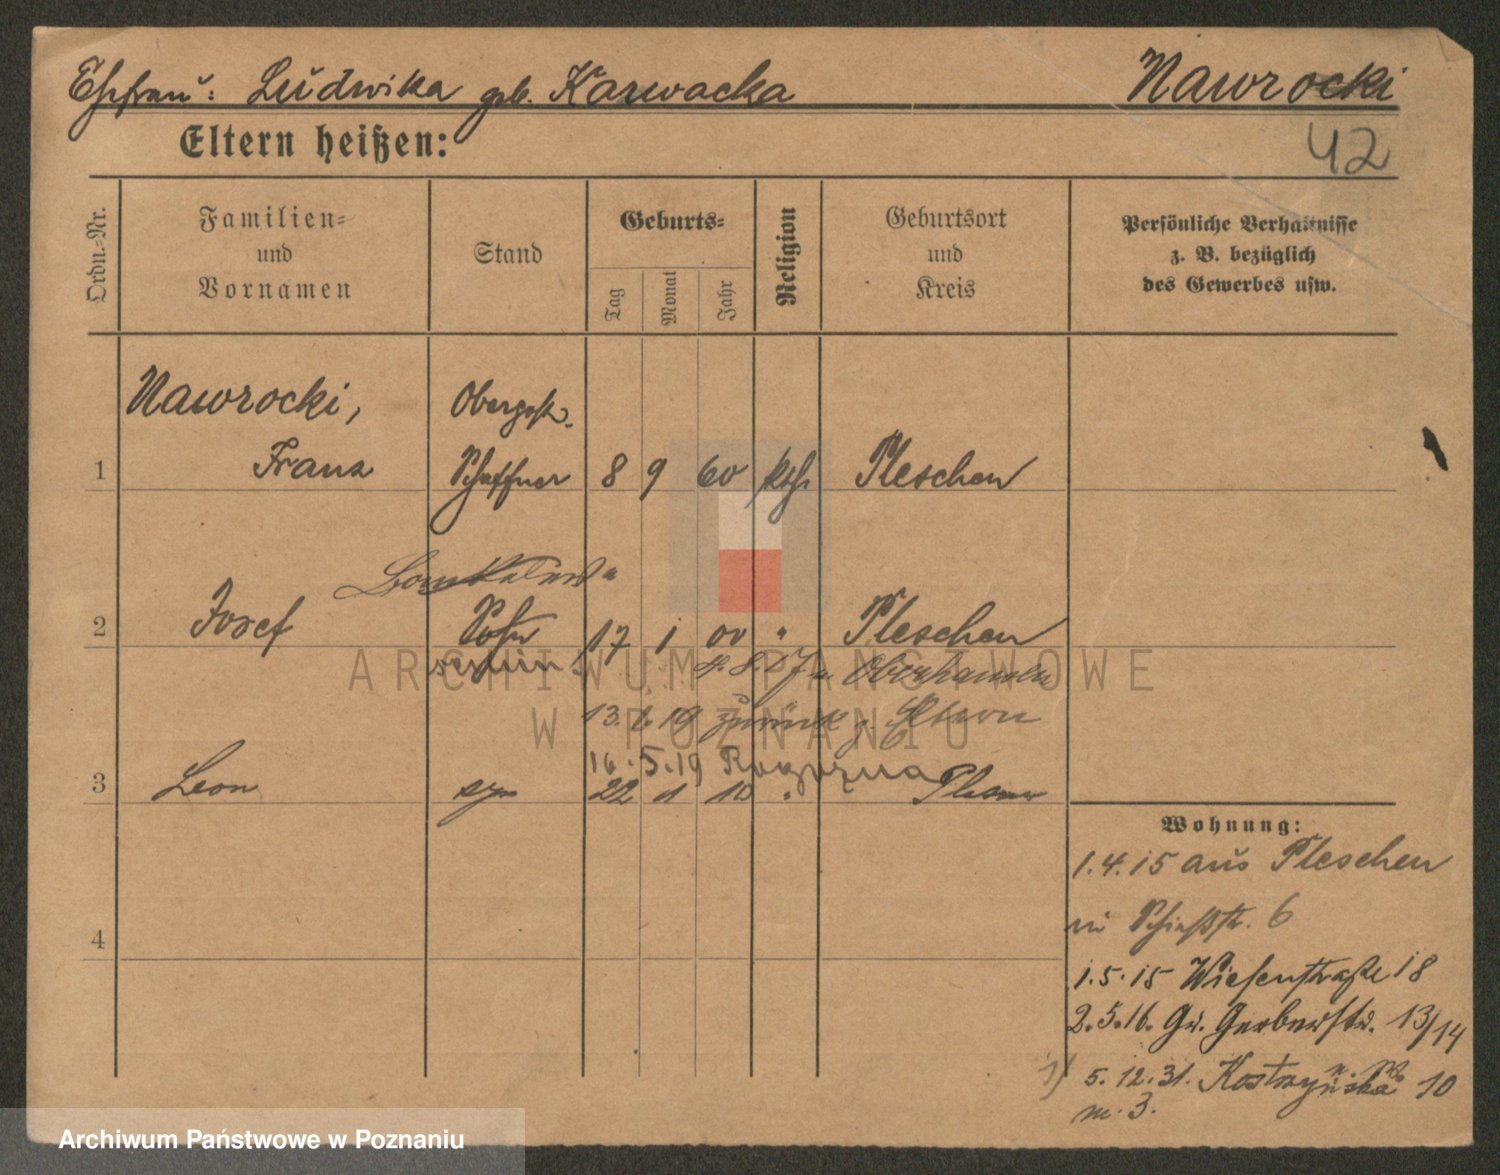 Ehefrau: Ludwika geb. Karwacka Nawrocki
42
Eltern heißen:
Ordn.-Nr.
Familien- und Vornamen
Stand
Geburts-
Tag
Monat
Jahr
Religion
Geburtsort und Kreis
Persönliche Verhältnisse z. B. bezüglich des Gewerbes usw.
Nawrocki,
1 Franz Schaffner 8 9 60 kth. Pleschen
2 Josef Sohn 17 1 00 " Pleschen
4. 8. 17 n. Oberhausen
13. 1. 19 zurück v.
16.5.19 Rogoźna
3 Leon syn 22 1 10 " Pleszew
4
Wohnung:
1.4.15 aus Pleschen
Schießstr. 6
1.5.15 Wiesenstraße 18
2.5.16. Gr. Gerberstr. 13/14
1) 5.12.31. Kostrzyńska 10
m. 3.
ARCHIWUM PAŃSTWOWE
W POZNANIU
Archiwum Państwowe w Poznaniu